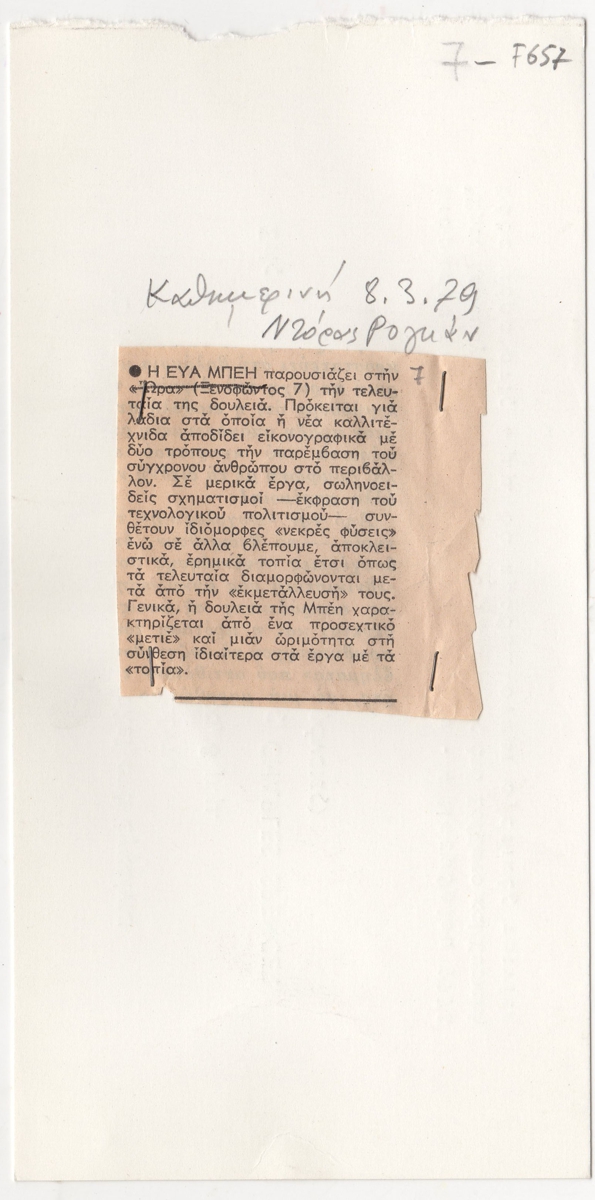 7 - F657
Καθημερινή 8.3.79
Ντόρας Ρογκάν
● Η ΕΥΑ ΜΠΕΗ παρουσιάζει στήν 7
«Ὥρα» (Ξενοφῶντος 7) τήν τελευ-
ταία της δουλειά. Πρόκειται γιά
λάδια στά ὁποία ἡ νέα καλλιτέ-
χνιδα ἀποδίδει εἰκονογραφικά μέ
δύο τρόπους τήν παρέμβαση τοῦ
σύγχρονου ἀνθρώπου στό περιβάλ-
λον. Σέ μερικά ἔργα, σωληνοει-
δεῖς σχηματισμοί —ἐκφραση τοῦ
τεχνολογικοῦ πολιτισμοῦ— συν-
θέτουν ἰδιόμορφες «νεκρές φύσεις»
ἐνῶ σέ ἄλλα βλέπουμε, ἀποκλει-
στικά, ἐρημικά τοπία ἔτσι ὅπως
τά τελευταία διαμορφώνονται με-
τά ἀπό τήν «ἐκμετάλλευσή» τους.
Γενικά, ἡ δουλειά τῆς Μπέη χαρα-
κτηρίζεται ἀπό ἕνα προσεχτικό
«μετιέ» καί μιάν ὡριμότητα στή
σύνθεση ἰδιαίτερα στά ἔργα μέ τά
«τοπία».